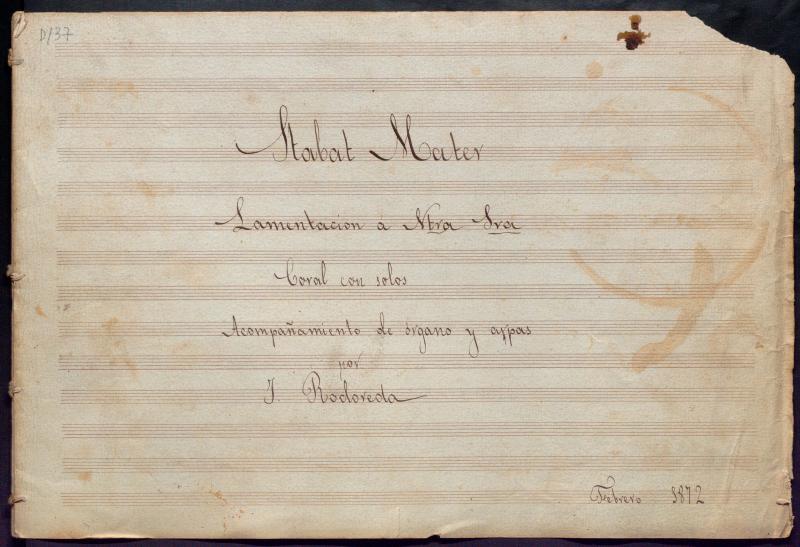 D/37
Stabat Mater
Lamentacion á Ntra Sra
Coral con solos
Acompañamiento de órgano y arpas
por
J. Rodoreda
Febrero 1872